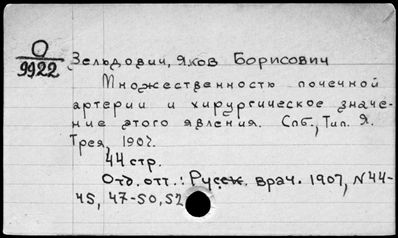 О
9922
Зельдович, Яков Борисович
Множественностью почечной
артерии и хирургическое значе-
ние этого явления. Спб., Тип. Я.
Трея, 1907.
44 стр.
Отд. отт.: Русск. врач. 1907, N44-
45, 47-50, 52